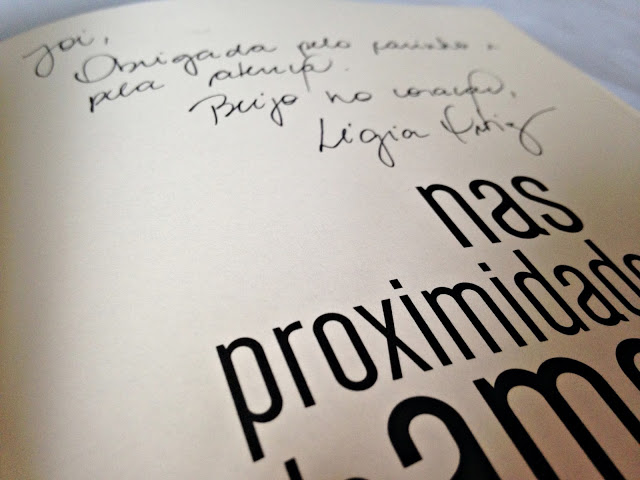 Joi,
Obrigada pelo carinho e
pela atenção.
Beijo no coração,
Ligia
nas
proximidade